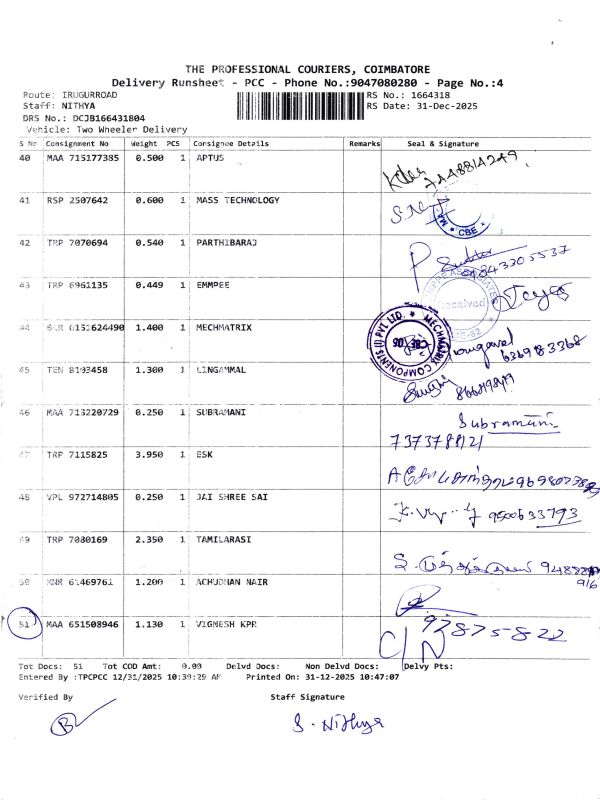 THE PROFESSIONAL COURIERS, COIMBATORE
Delivery Runsheet - PCC - Phone No.:9047080280 - Page No.:4
Route: IRUGURROAD RS No.: 1664318
Staff: NITHYA RS Date: 31-Dec-2025
DRS No.: DCJB166431804
Vehicle: Two Wheeler Delivery
S No Consignment No Weight PCS Consignee Details Remarks Seal & Signature
40 MAA 715177385 0.500 1 APTUS
41 RSP 2507642 0.600 1 MASS TECHNOLOGY
CBE
42 TRP 7070694 0.540 1 PARTHIBARAJ
43 TRP 6961135 0.449 1 EMMPEE
Received
44 6151624490 1.400 1 MECHMATRIX
MECHMATRIX COMPONENTS (I) PVT LTD.
6369183368
45 TEN 8103458 1.300 1 LINGAMMAL
46 MAA 713220729 0.250 1 SUBRAMANI
Subramani
7373788121
47 TRP 7115825 3.950 1 ESK
48 VPL 972714805 0.250 1 JAI SHREE SAI
9500633793
49 TRP 7080169 2.350 1 TAMILARASI
50 KNR 61469761 1.200 1 ACHUDHAN NAIR
51 MAA 651508946 1.130 1 VIGNESH KPR
97875822
C/N
Tot Docs: 51 Tot COD Amt: 0.00 Delvd Docs: Non Delvd Docs: Delvy Pts:
Entered By :TPCPCC 12/31/2025 10:39:29 AM Printed On: 31-12-2025 10:47:07
Verified By Staff Signature
S. Nithya